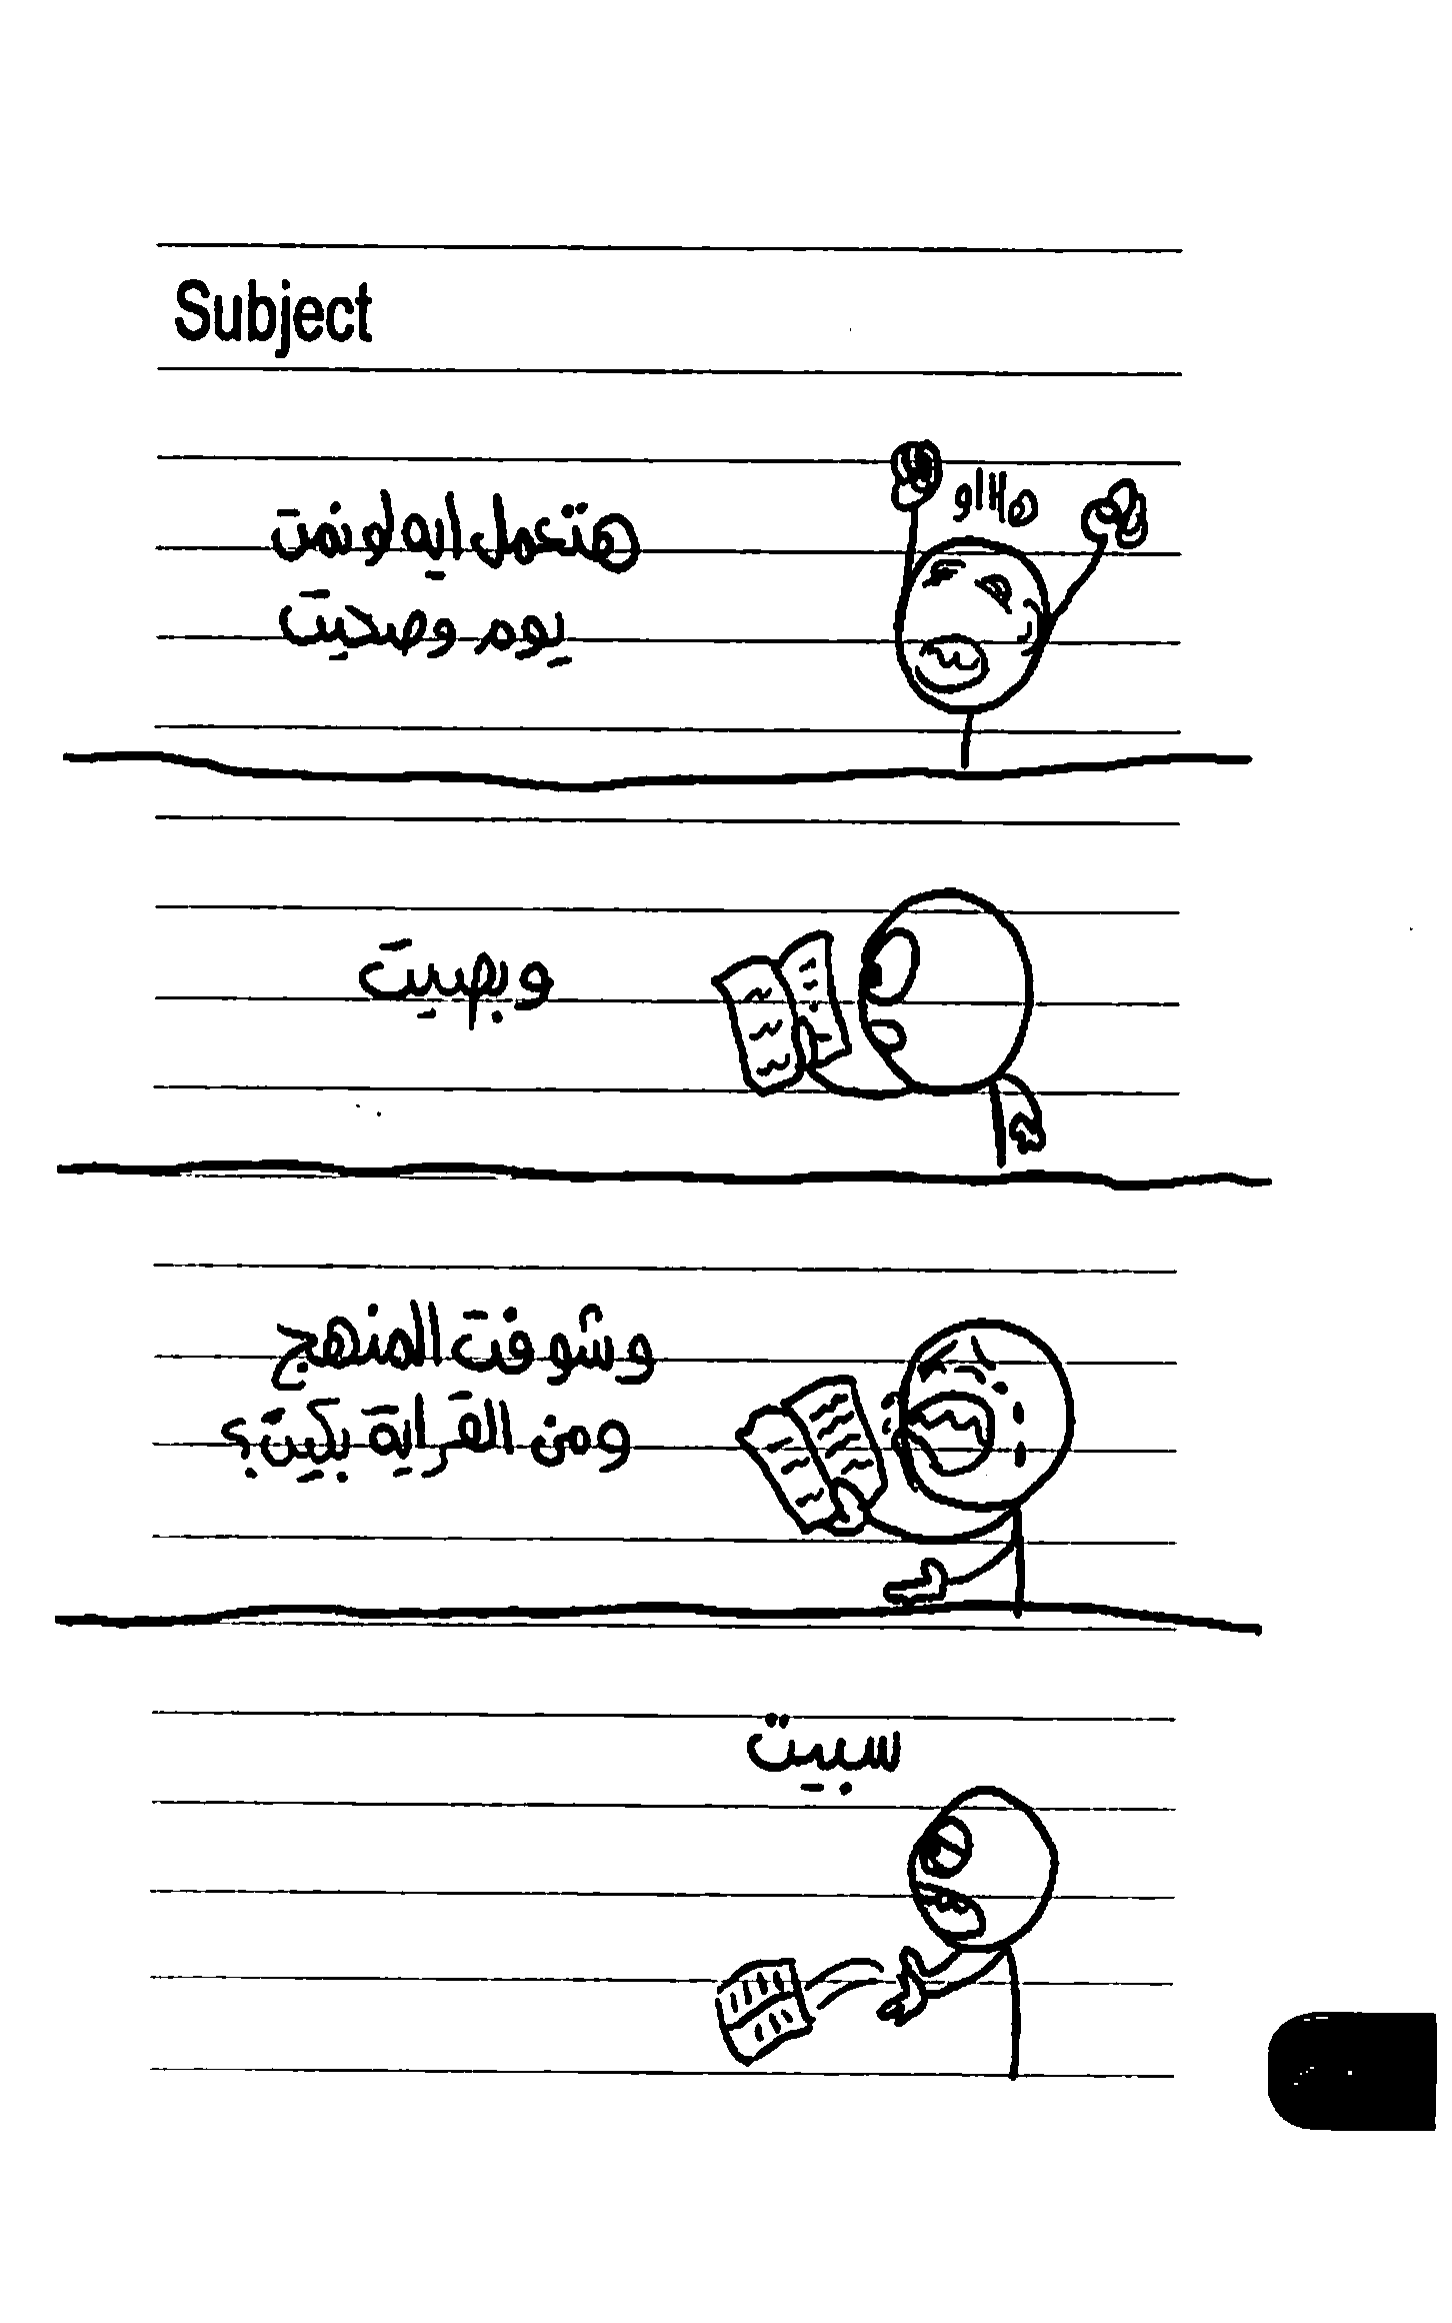 Subject
هاااو
هتعمل ايه لو نمت
يوم وصحيت
وبصيت
وشوفت المنهج
ومن القراية بكيت؟
سبيت